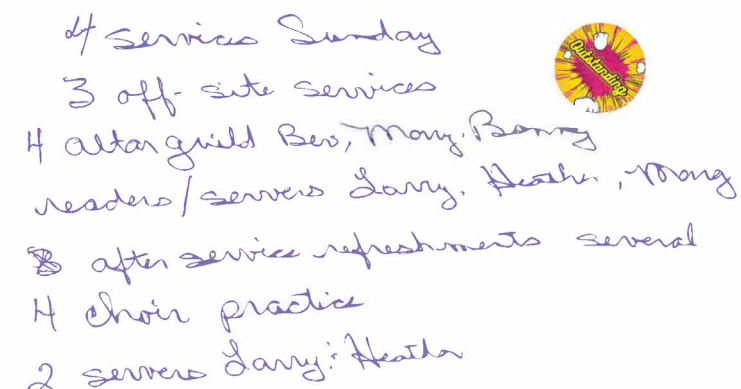 4 services Sunday
Outstanding
3 off-site services
4 altar guild Bev, Mary, Bonny
readers/servers Larry, Heather, Mary
after service refreshments several
4 choir practice
2 servers Larry: Heather